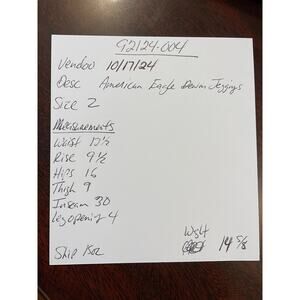 92124-004
Vendoo 10/17/24
Desc American Eagle Denim Jeggings
Size 2
Measurements
Waist 13½
Rise 9½
Hips 16
Thigh 9
Inseam 30
Leg opening 4
Wght
Ship 15oz 14 5/8